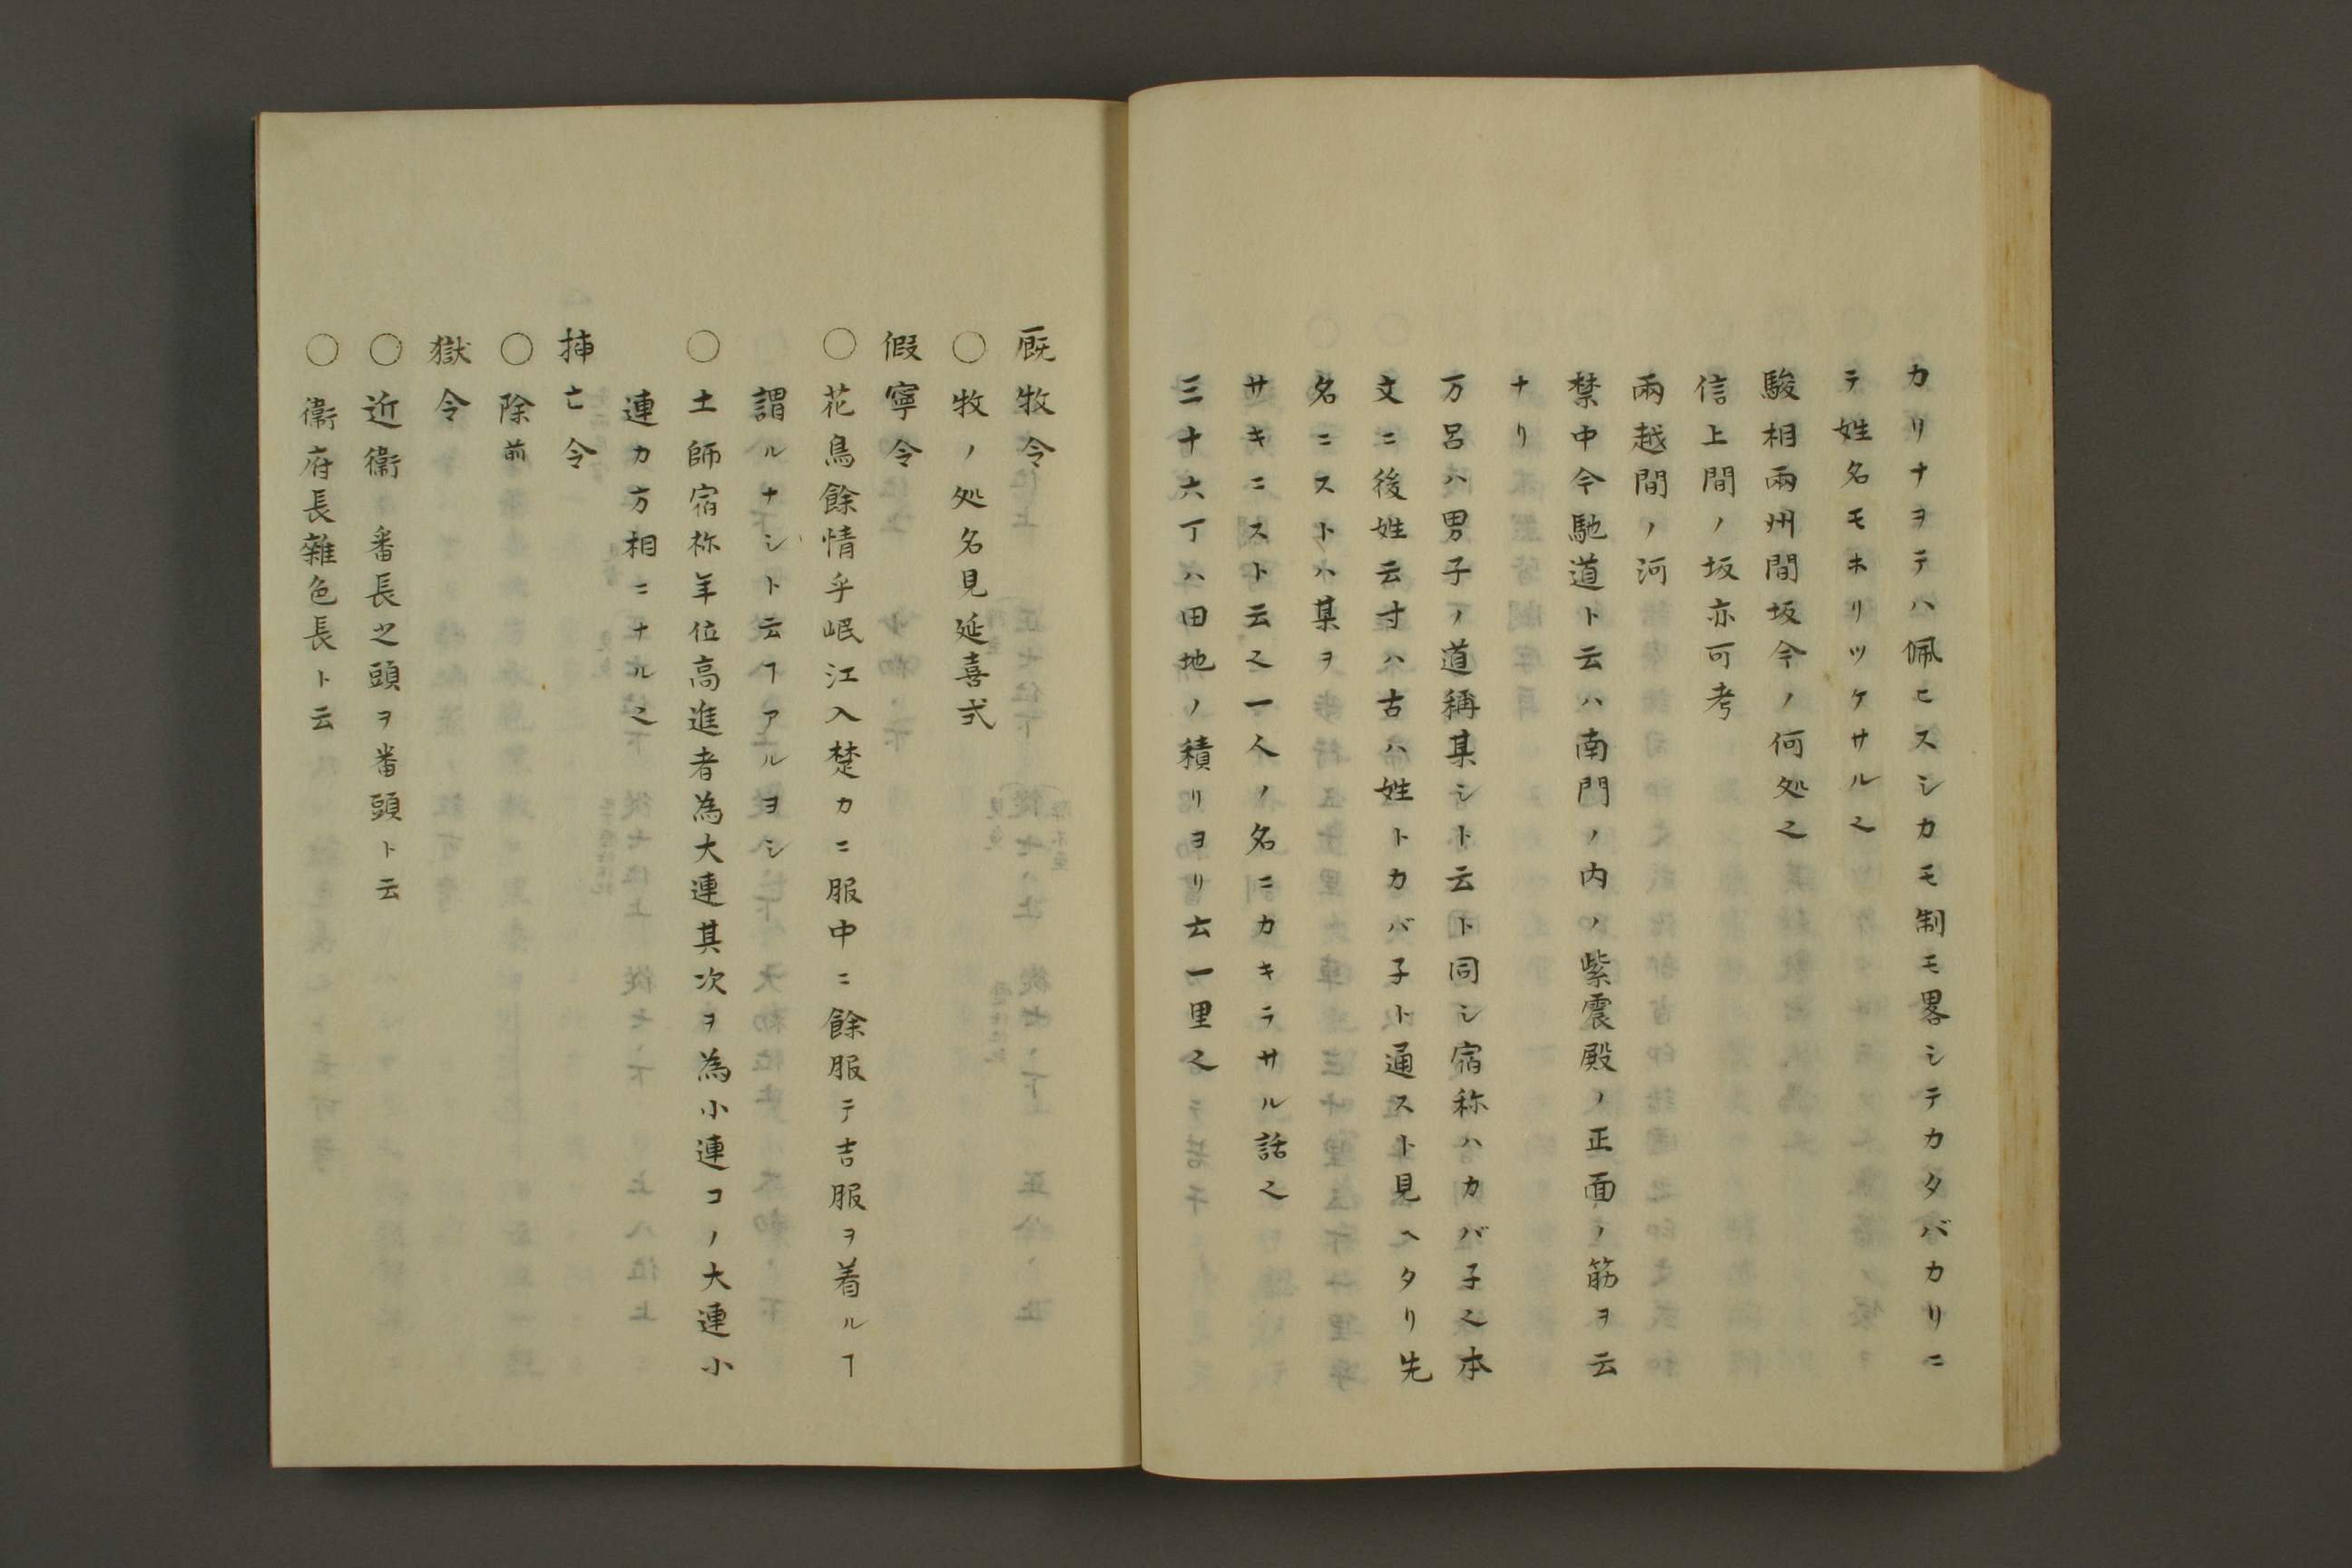 カリナヲテハ佩ヒスシカモ制モ畧シテカタバカリニ
テ姓名モホリツケサル之
駿相兩州間坂今ノ何処之
信上間ノ坂亦可考
兩越間ノ河
禁中今馳道ト云ハ南門ノ内ノ紫震殿ノ正面ノ筋ヲ云
ナリ
万呂ハ男子ノ道稱某シト云ト同シ宿称ハカバ子之本
文ニ後姓云寸ハ古ハ姓トカバ子ト通スト見ヘタリ先
名ニストハ某ヲ
サキニスト云之一人ノ名ニカキラサル話之
三十六丁ハ田地ノ積リヨリ去一里之
厩牧令
〇牧ノ処名見延喜式
假寧令
〇花鳥餘情乎岷江入楚カニ服中ニ餘服テ吉服ヲ着ルヿ
謂ルナシト云ヿアルヲシ
〇土師宿祢羊位高進者為大連其次ヲ為小連コノ大連小
連カ方相ニナル之
捕亡令
〇除前
獄令
〇近衞 番長之頭ヲ番頭ト云
〇衞府長雜色長ト云